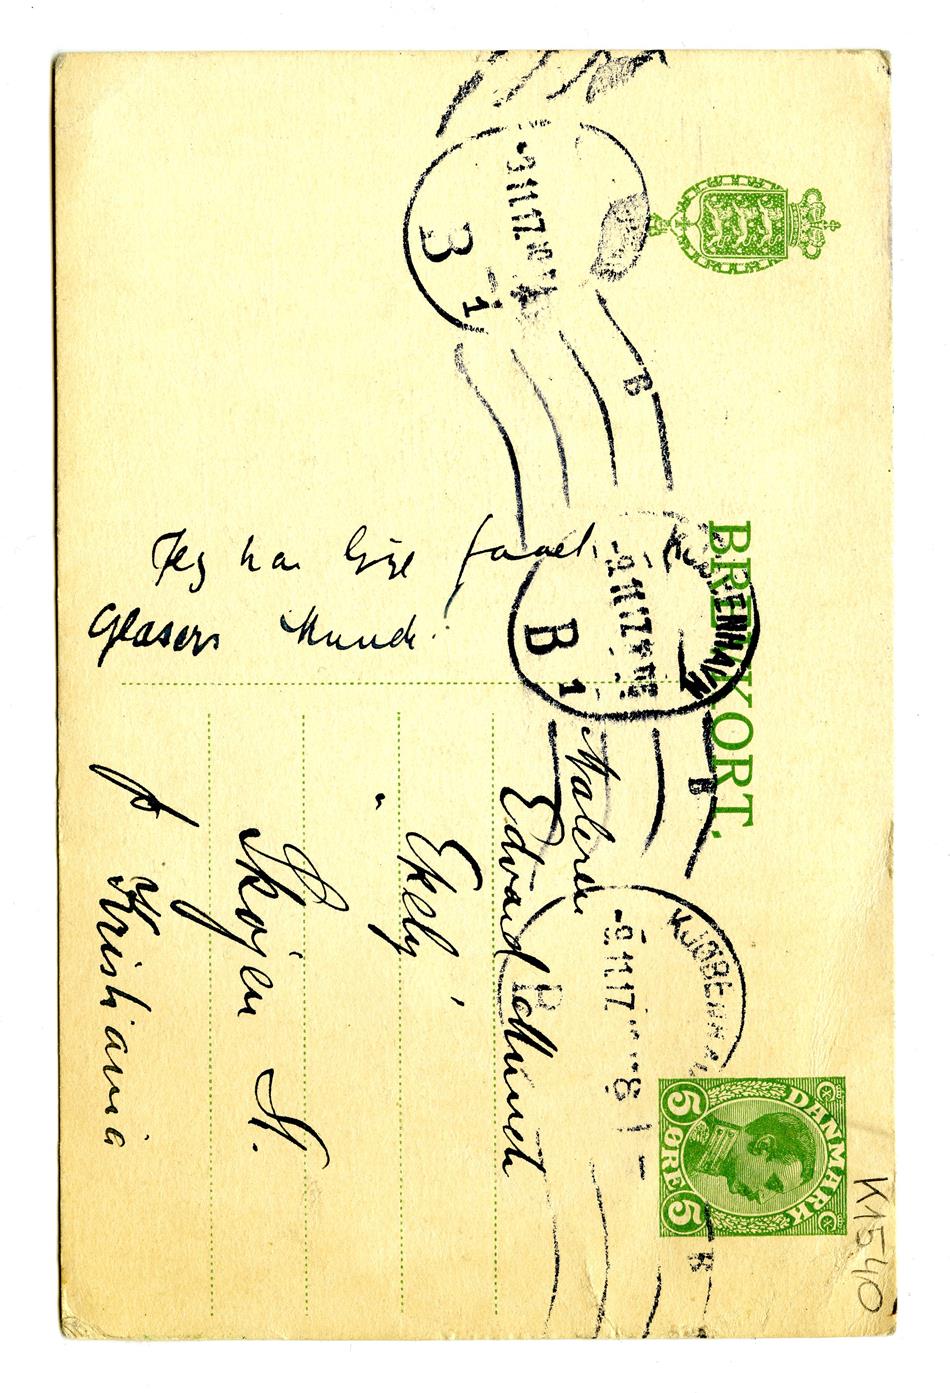 BREVKORT.
KJØBENHAVN
-9.11.17.
B
1
B
-9.11.17.
B
1
B
KJØBENHAVN
-9.11.17. 8
B
DANMARK
5 ØRE 5
K1540
Jeg har lige faaet
Glasers Munch
Maleren
Edvard Munch
Ekely,
Skøjen St.
pr Kristiania